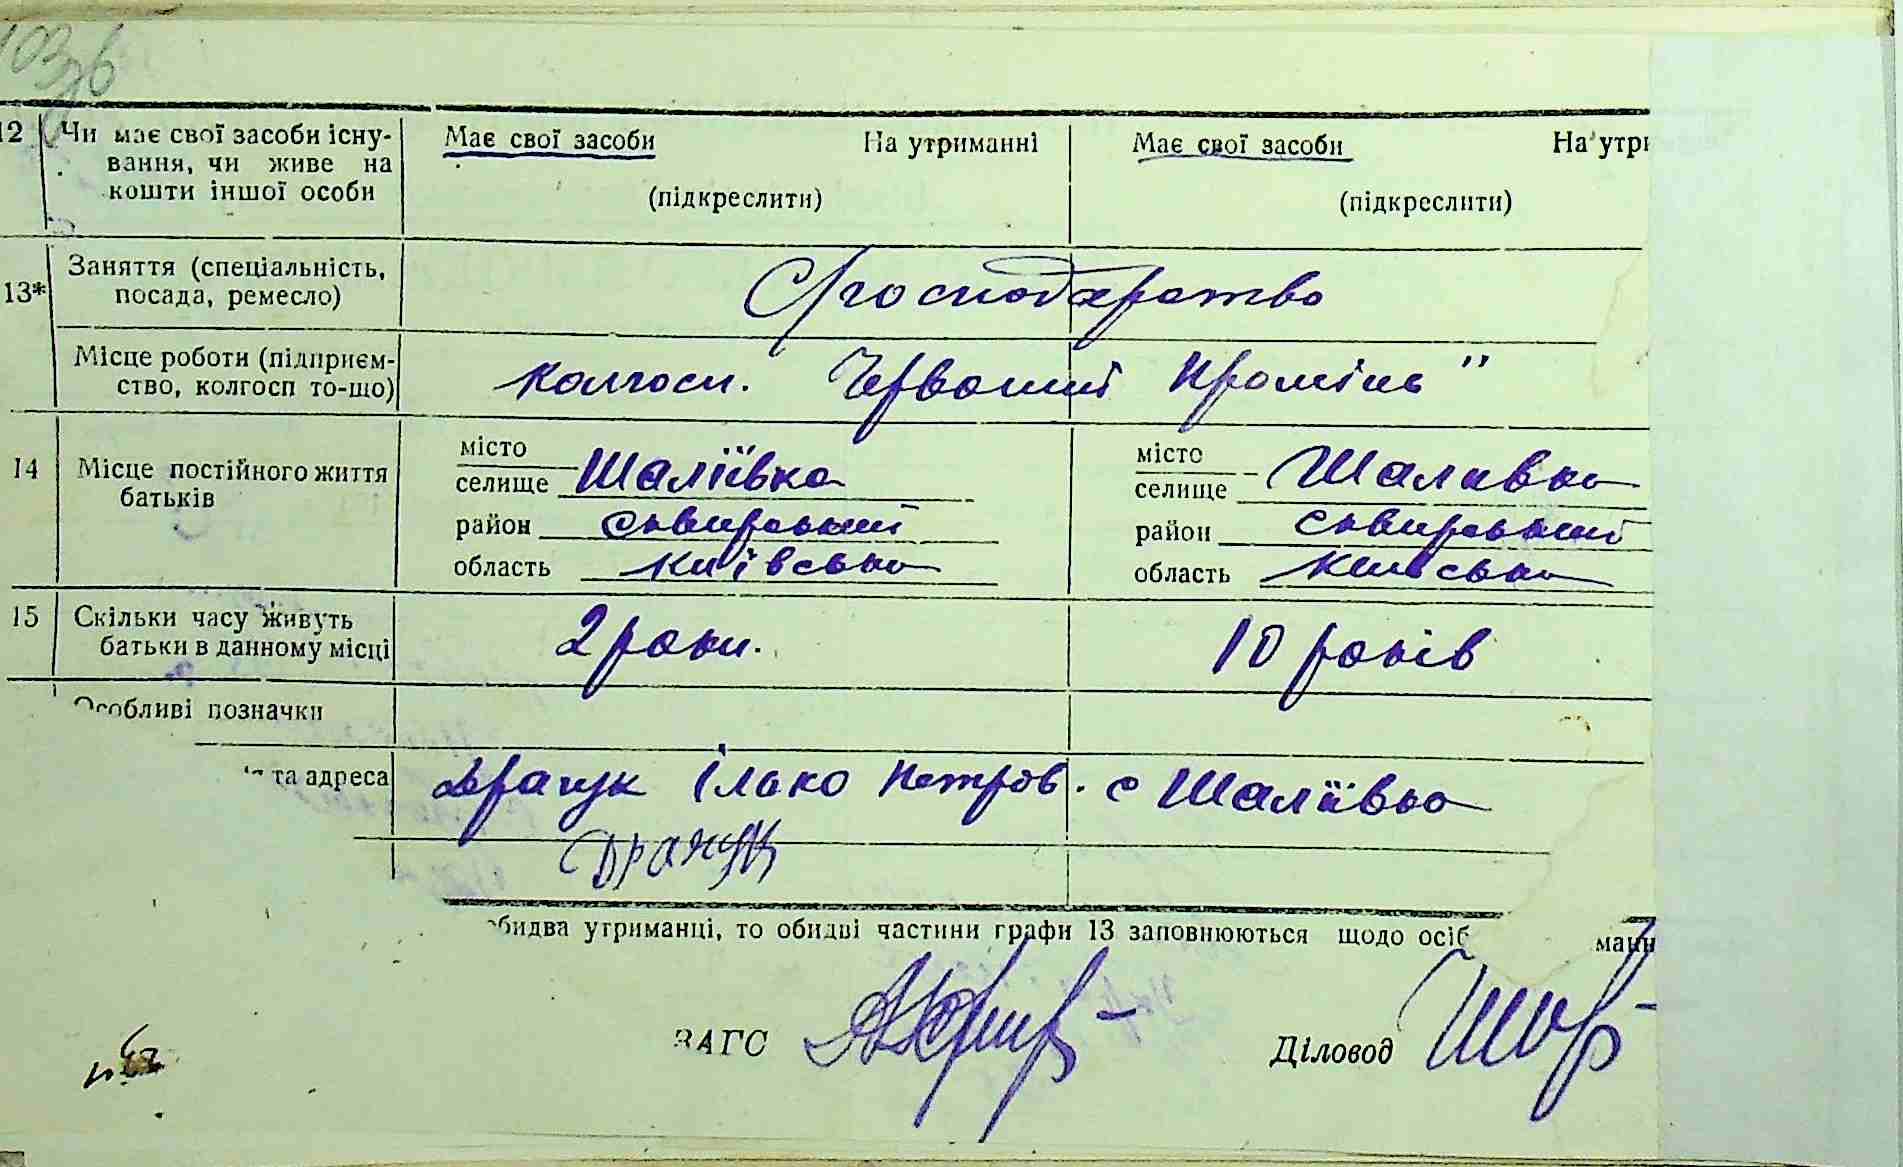 12 Чи має свої засоби існу-
вання, чи живе на
кошти іншої особи
Має свої засоби На утриманні
(підкреслити)
Має свої засоби На утри
(підкреслити)
13* Заняття (спеціальність,
посада, ремесло)
С/господарство
Місце роботи (підприєм-
ство, колгосп то-що)
колгосп. Червоний промінь"
14 Місце постійного життя
батьків
місто
селище Шаліївка
район сквирський
область київська
місто
селище Шалівка
район сквирський
область київська
15 Скільки часу живуть
батьки в данному місці
2 роки.
10 років
Особливі позначки
та адреса
Драчук Ілько Петров. с Шаліївка
Драчук
обидва утриманці, то обидві частини графи 13 заповнюються щодо осіб манн
ЗАГС
Діловод